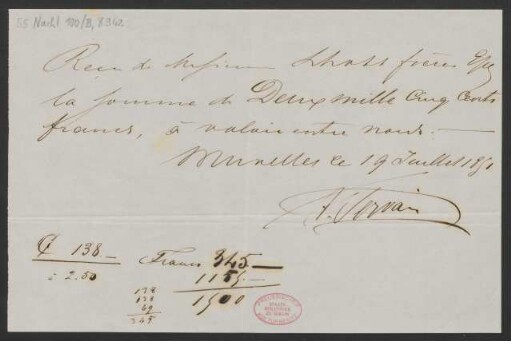 55 Nachl 100/B, 8962
Recu de Messieurs Schott frères Epg
la somme de Deux mille Cinq Cents
francs, à valoir entre nous.
Bruxelles le 19 Juillet 1851
A. Servais
₵ 138.—
à 2.50
Francs 345—
1155—
1500
138
138
69
345